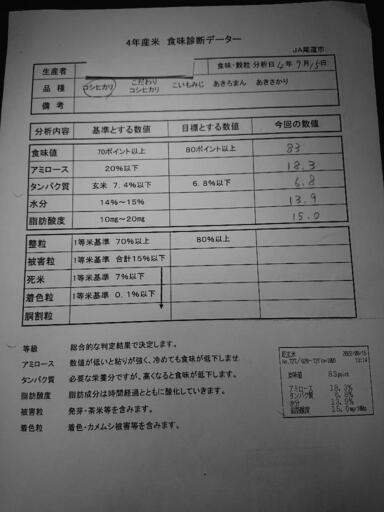 4年産米 食味診断データー
JA尾道市
生産者 食味・穀粒 分析日 4年 9月 15日
品種 コシヒカリ こだわりコシヒカリ こいもみじ あきろまん あきさかり
備考
分析内容 基準とする数値 目標とする数値 今回の数値
食味値 70ポイント以上 80ポイント以上 83
アミロース 20%以下 18.3
タンパク質 玄米 7.4%以下 6.8%以下 6.8
水分 14%~15% 13.9
脂肪酸度 10mg~20mg 15.0
整粒 1等米基準 70%以上 80%以上
被害粒 1等米基準 合計15%以下
死米 1等米基準 7%以下
着色粒 1等米基準 0.1%以下
胴割粒
等級 総合的な判定結果で決定します。
アミロース 数値が低いと粘りが強く、冷めても食味が低下しませ
タンパク質 必要な栄養分ですが、高くなると食味が低下します。
脂肪酸度 脂肪成分は時間経過とともに酸化していきます。
被害粒 発芽・茶米等を含みます。
着色粒 着色・カメムシ被害等を含みます。
2022/09/15
13:14
食味値 83point
アミロース 18.3%
タンパク質 6.8%
水分 13.9%
脂肪酸度 15.0mg/100g